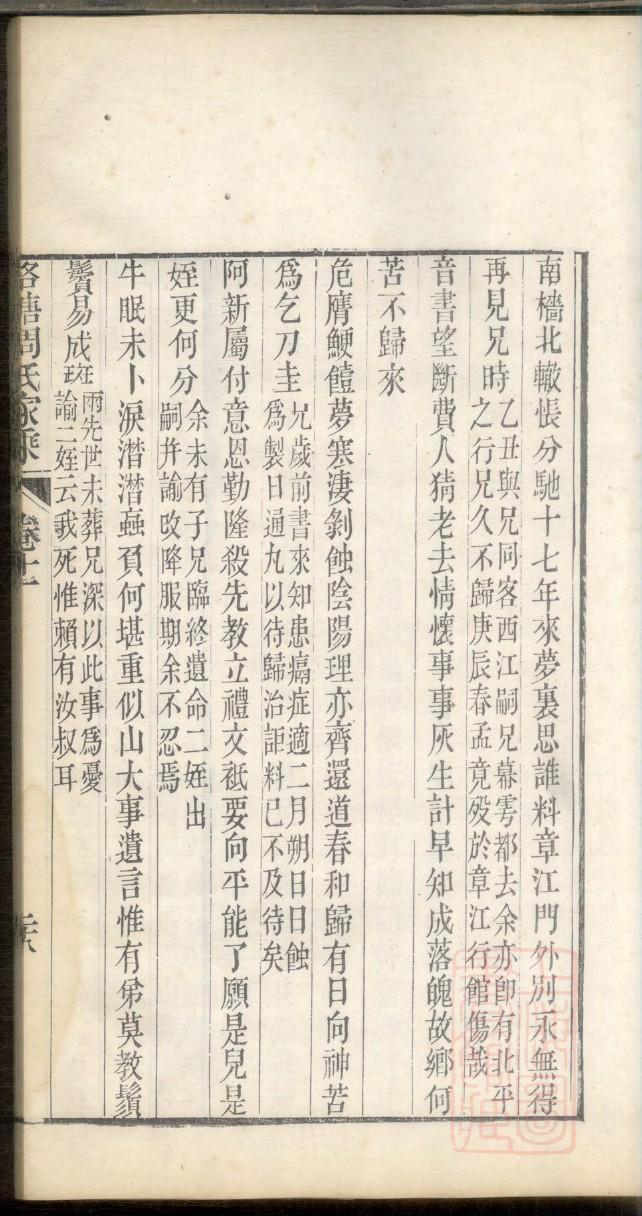 南檣北轍悵分馳十七年來夢裏思誰料章江門外別永無得
再見兄時乙丑與兄同客西江嗣兄幕雩都去余亦卽有北平
之行兄久不歸庚辰春孟竟歿於章江行館傷哉
音書望斷費人猜老去情懷事事灰生計早知成落魄故鄉何
苦不歸來
危膺鯁饐夢寒淒剝蝕陰陽理亦齊還道春和歸有日向神苦
爲乞刀圭兄歲前書來知患瘑症適二月朔日日蝕
爲製日通丸以待歸治詎料已不及待矣
阿新屬付意恩勤隆殺先教立禮文祗要向平能了願是兒是
姪更何分余未有子兄臨終遺命二姪出
嗣幷諭改降服期余不忍焉
牛眠未卜淚潸潸蝱負何堪重似山大事遺言惟有弟莫教鬚
鬢易成斑兩先世未葬兄深以此事爲憂
諭二姪云我死惟賴有汝叔耳
洛塘周氏家乘 卷十一 二六